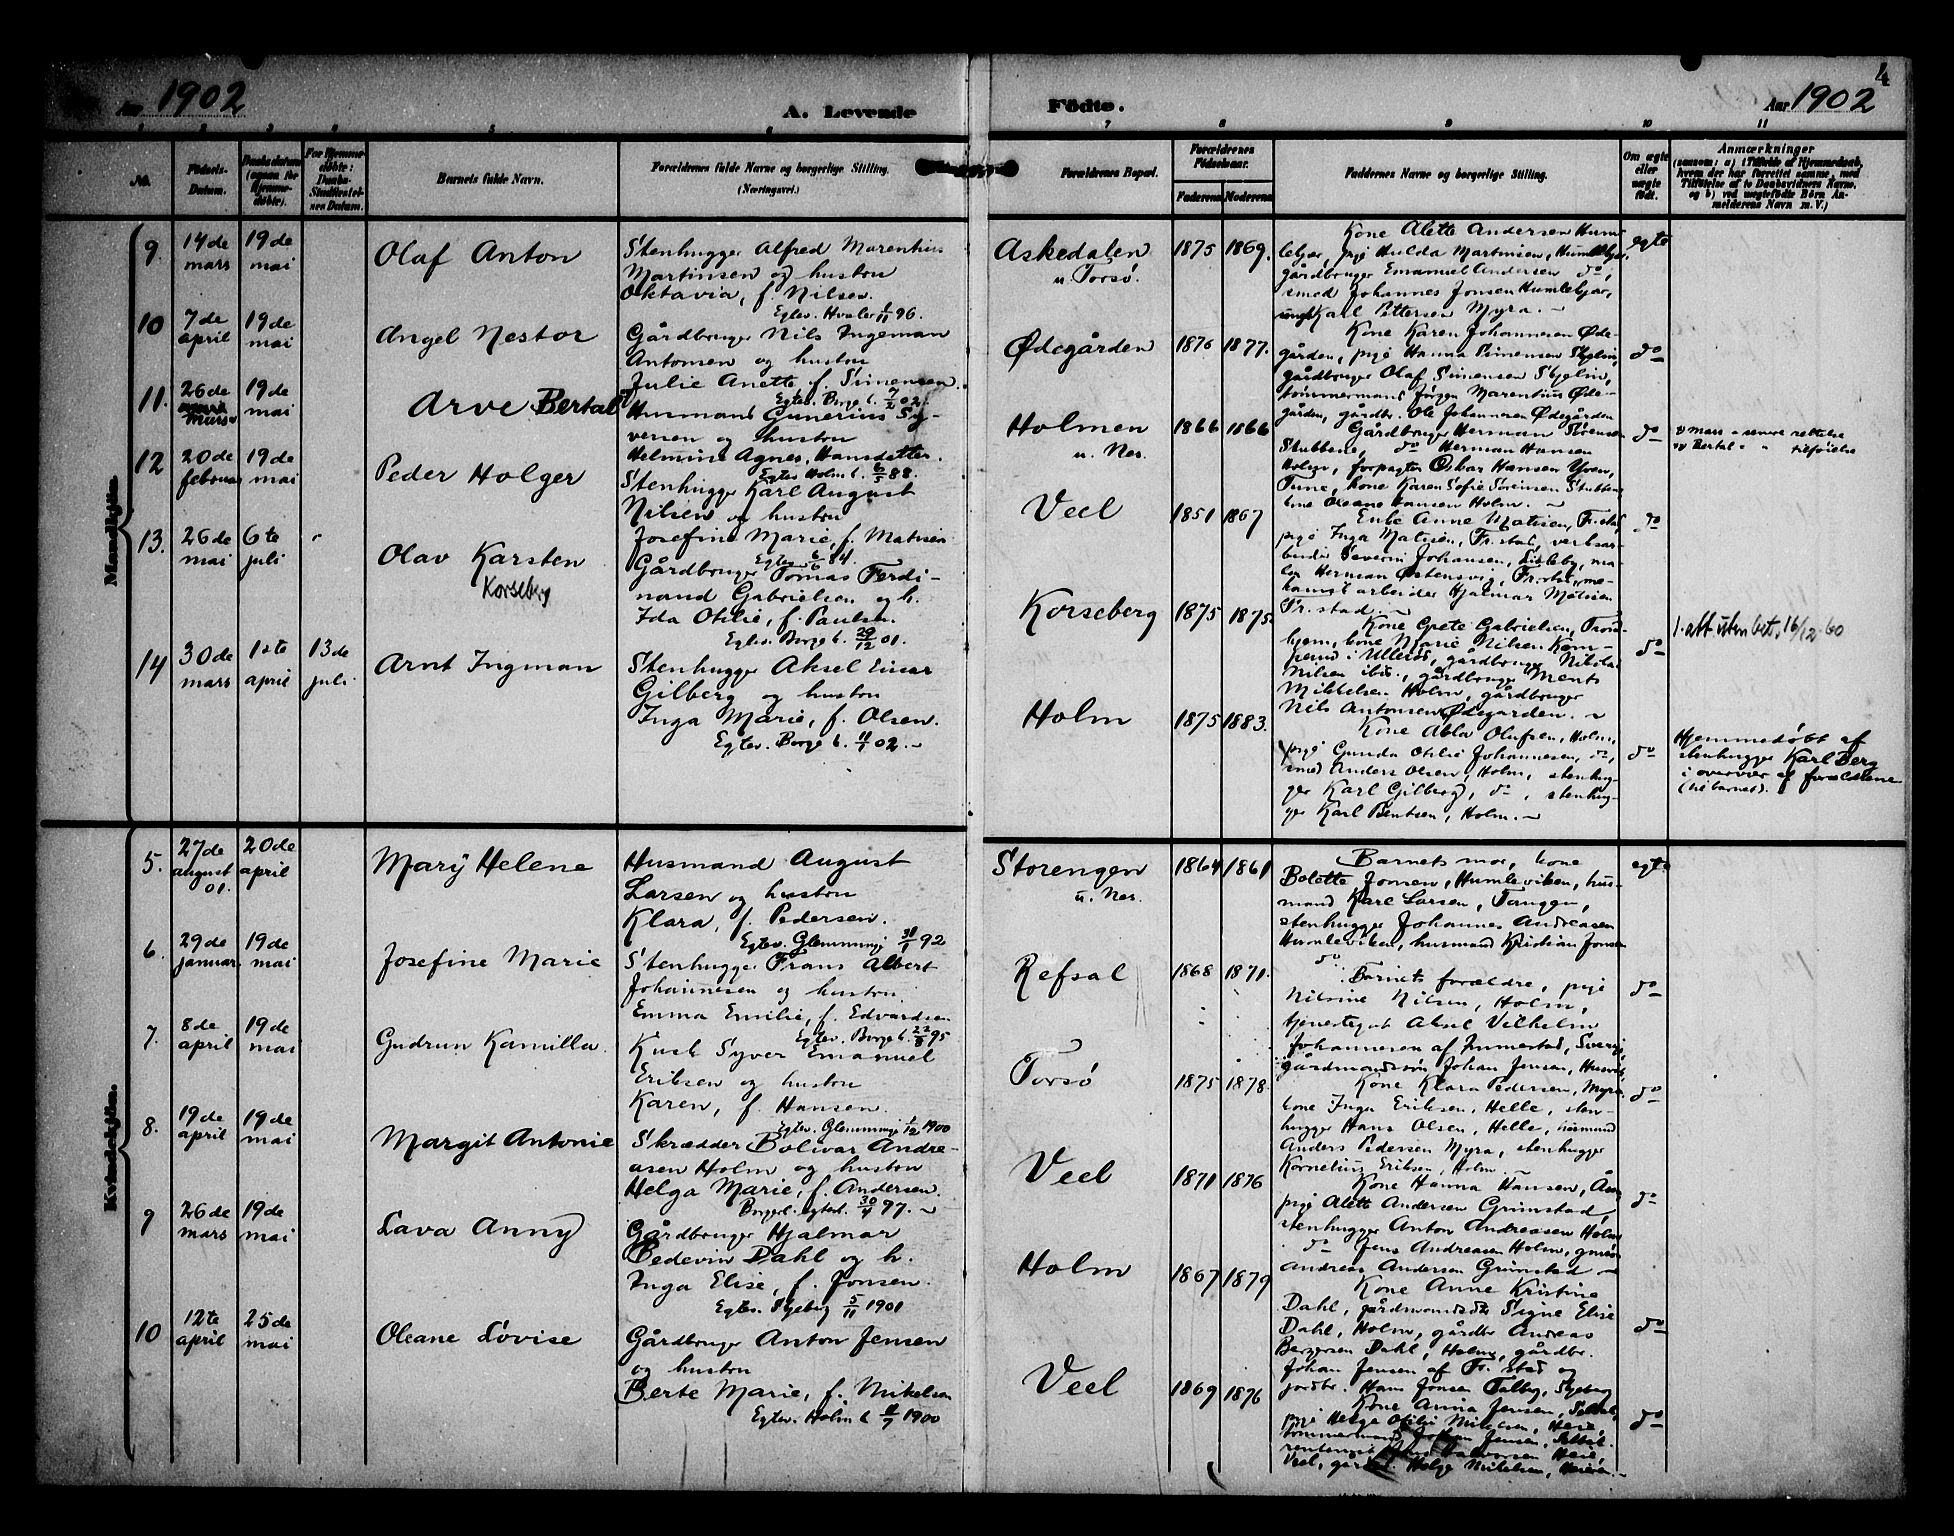 4
Aar 1902 A. Levende Födte. Aar 1902
1 2 3 4 5 6 7 8 9 10 11
No.
Födsels-Datum.
Daabsdatum (ogsaa for Hjemmedöbte).
For Hjemmedöbte: Daabs-Stadfæstelsens Datum.
Barnets fulde Navn.
Forældrenes fulde Navne og borgerlige Stilling. (Næringsvei.)
Forældrenes Bopæl.
Forældrenes Födselsaar.
Faderens Moderens
Faddernes Navne og borgerlige Stilling.
Om ægte eller uægte födt.
Anmærkninger
(saasom: a) i Tilfælde af Hjemmedaab, hvem der har forrettet samme, med Tilföielse af to Daabsvidners Navne, og b) ved uægtefödte Börn Anmelderens Navn m. V.)
Mandkjön.
9. 14 de mars 19 de mai
Olaf Anton
Stenhugger Alfred Marentius
Martinsen og hustru
Oktavia, f. Nilsen.
Egtev. Hvaler 1/11 96.
Askedalen
u. Torsö.
1875 1869.
Kone Alette Andersen Humlebjær, pige Hulda Martinsen, Humlebjær,
gårdbruger Emanuel Andersen do,
smed Johannes Jonsen Humlebjær,
ungk. Karl Pettersen Myra.
egte
10 7 de april 19 de mai
Angel Nestor
Gårdbruger Nils Ingeman
Antonsen og hustru
Julie Anette, f. Simensen.
Egtev. Borge k. 7/2 02.
Ødegården
1876 1877.
Kone Karen Johannesen Ødegården, pige Hanna Simensen
gårdbruger Olaf Simensen
tömmermand Jörgen Marentius Ødegården, gårdbr. Ole Johannesen Ødegården
do
11. 26 de Mars 19 de mai
Arve Bertal
Husmand Gunerius Syversen og hustru
Helmine Agnes, Hansdatter.
Egtev. Holm k. 6/5 88.
Holmen
u. Nes.
1866 1866
Gårdbruger Herman Sörensen
Stubbene, do Herman Hansen
Holm, forpagter Oskar Hansen Yven,
Tune, kone Karen Sofie Sörensen Stubbene
Oleane Hansen Holm.
do
mars - senere rettelse
Bertal " " tilföielse
12 20 de februar 19 de mai
Peder Holger
Stenhugger Karl August
Nilsen og hustru
Josefine Marie, f. Matisen
Egtev.
Veel
1851 1867
Enke Anne Matisen, Fr.stad,
pige Inga Matisen, Fr.stad, verksarbeider Severin Johansen, Lisleby, maler Herman Østensvig, Fr.stad, mekanisk arbeider Hjalmar Matisen
Fr.stad.
do
13. 26 de mai 6 te juli
Olav Karsten
Korseberg
Gårdbruger Tomas Ferdinand Gabrielsen og h.
Ida Otilie, f. Paulsen.
Egtev. Borge k. 29/12 01.
Korseberg
1875 1875.
Kone Grete Gabrielsen,
kone Marie Nilsen
i Ulleröd, gårdbruger Nikolai
Nilsen ibid., gårdbruger Ments
Mikkelsen Holm, gårdbruger
Nils Antonsen Ødegården.
do
1. att uten bet. 16/12-60
14 30 de mars 1ste april 13 de juli
Arnt Ingman
Stenhugger Aksel Einar
Gilberg og hustru
Inga Marie, f. Olsen.
Egtev. Borge k. 11/1 02.
Holm
1875 1883.
Kone Olufsen, Holm,
pige Gunda Otilie Johannesen, do,
smed Anders Olsen, Holm, stenhugger Karl Gilberg, do, stenhugger Karl Bentsen, Holm.
do
Hjemmedöbt af
stenhugger Karl Berg
i overvær af forældrene
(til barnet).
Kvindekjön.
5. 27 de august 01. 20 de april
Mary Helene
Husmand August
Larsen og hustru
Klara, f. Pedersen.
Egtev. Glemminge 31/1 92
Storengen
u. Nes.
1864 1861
Barnets mor, kone
Bolette Jonsen, Humleviken, husmand Karl Larsen, Tangen,
stenhugger Johannes Andreasen
Humleviken, husmand Kristian Jonsen
do
egte
6. 29 de januar 19 de mai
Josefine Marie
Stenhugger Frans Albert
Johannesen og hustru
Emma Emilie, f. Edvardsen
Egtev. Borge k. 95
Refsal
1868 1871.
Barnets forældre, pige
Nilsine Nilsen, Holm,
tjenestegut Aksel Vilhelm
Johannesen af Immestad, Sverige,
gårdmandssön Johan Jensen,
do
7. 8 de april 19 de mai
Gudrun Kamilla
Kusk Syver Emanuel
Eriksen og hustru
Karen, f. Hansen.
Egtev. Glemminge 1/12 1900
Torsö
1875 1878.
Kone Klara Pedersen, Myra
kone Inga Eriksen, Helle, stenhugger Hans Olsen, Helle, husmand
Anders Pedersen Myra, stenhugger
Kornelius Eriksen, Holm.
do
8. 19 de april 19 de mai
Margit Antonie
Skrædder Bolivar Andreasen Holm og hustru
Helga Marie, f. Andersen.
Borgerl. egtev. 97.
Veel
1871 1876
Kone Hanna Hansen,
pige Alette Andersen Grimstad,
stenhugger Anton Andreasen Holm
do Jens Andreasen Holm,
Andreas Andersen Grimstad
do
9 26 de mars 19 de mai
Lava Anny
Gårdbruger Hjalmar
Bedevin Dahl og h.
Inga Elise, f. Jonsen.
Egtev. Skjeberg 5/11 1901
Holm
1867 1879
Kone Anne Kristine
Dahl, gårdmandsdtr Signe Elise
Dahl, Holm, gårdbr Andreas
Bergersen Dahl, Holm, gårdbr.
Johan Jensen af Fr.stad og
jordbr. Hans Jonsen Talberg, Skjeberg
do
10 12te april 25 de mai
Oleane Lovise
Gårdbruger Anton Jensen
og hustru
Berte Marie, f. Mikelsen
Egtev. Holm k. 1900
Veel
1869 1876
Kone Anna Jensen,
pige Helga Otilie Mikelsen,
tömmermand Johan Jensen,
Veel, gårdbr. Helge Mikelsen,
do